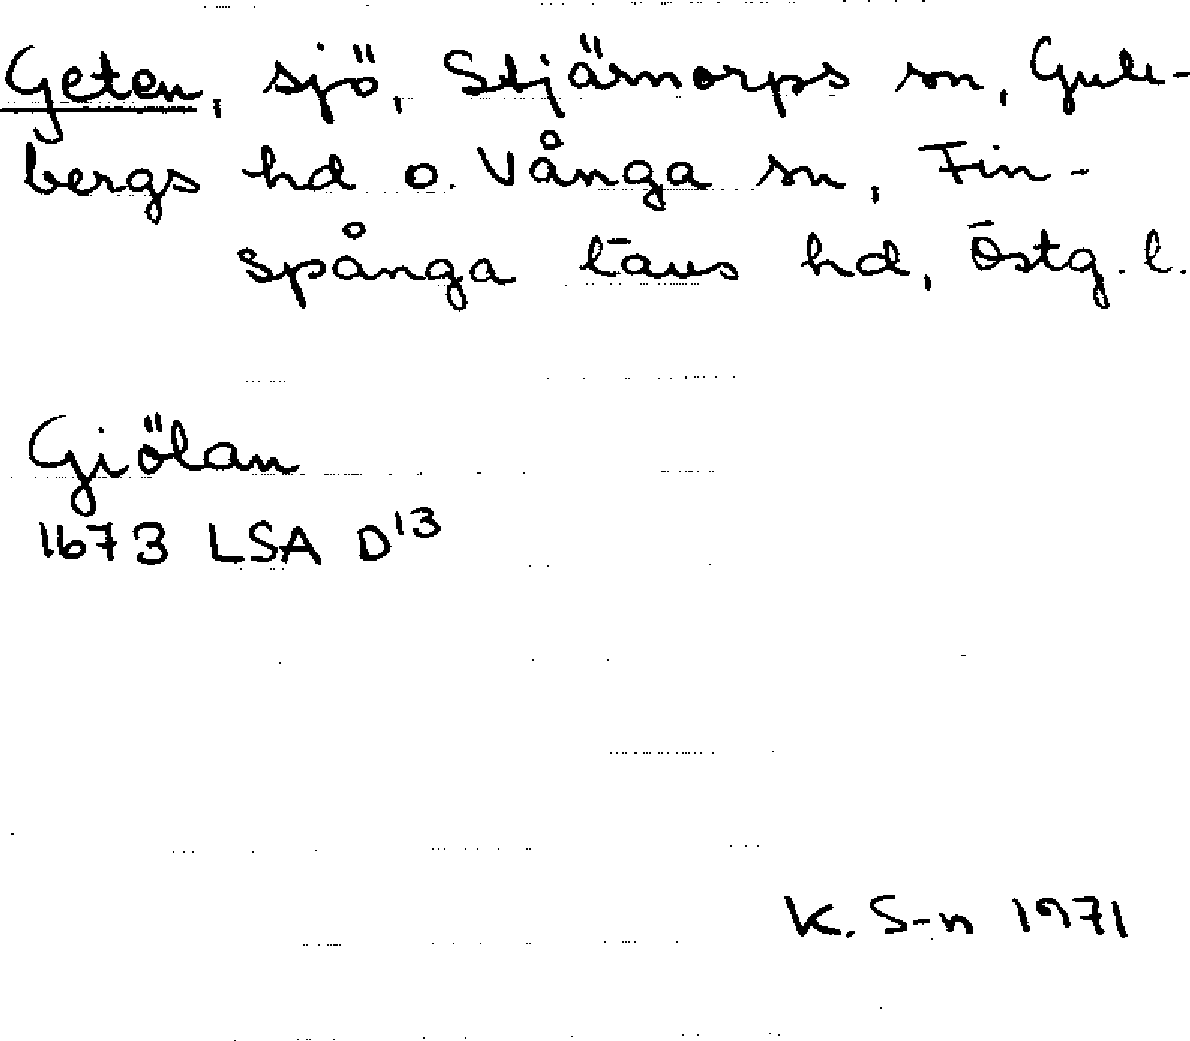 Geten, sjö, Stjärnorps sn, Gull-
bergs hd o. Vånga sn, Fin-
spånga läns hd, Östg. l.
Giölan
1673 LSA D13
K. S-n 1971